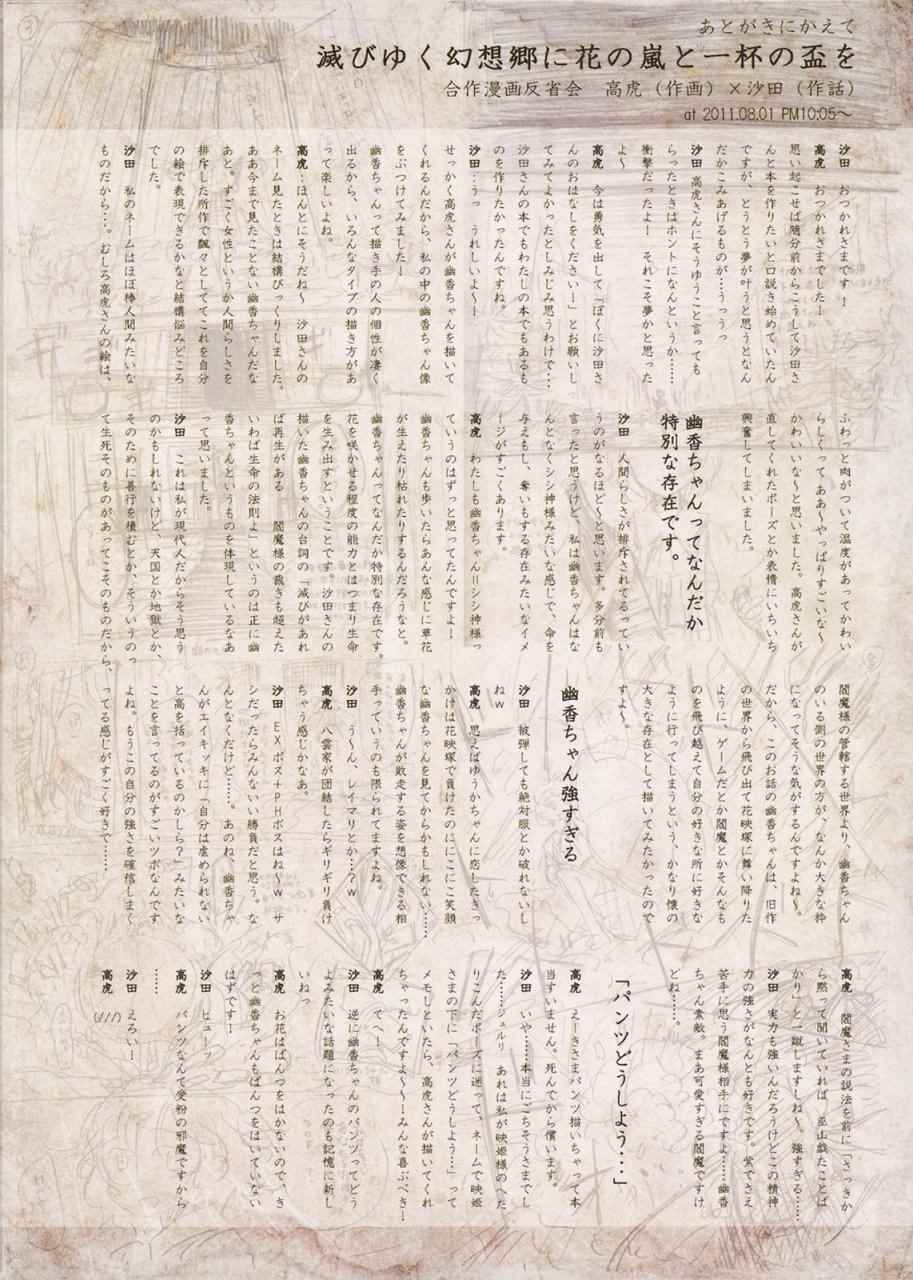 あとがきにかえて
滅びゆく幻想郷に花の嵐と一杯の盃を
合作漫画反省会　高虎（作画）×沙田（作話）
at 2011.08.01 PM10:05～
沙田　おつかれさまです！
高虎　おつかれさまでした！
思い起こせば随分前からこうして沙田さ
んと本を作りたいと口説き始めていたん
ですが、とうとう夢が叶うと思うとなん
だかこみあげるものが…うっうっ
沙田　高虎さんにそうゆうこと言っても
らったときはホントになんというか……
衝撃だったよ！　それこそ夢かと思った
よ～
高虎　今は勇気を出して「ぼくに沙田さ
んのおはなしをください！」とお願いし
てみてよかったとしみじみ思うわけで…
沙田さんの本でもわたしの本でもあるも
のを作りたかったんですね。
沙田…うっ　うれしいよ～！
せっかく高虎さんが幽香ちゃんを描いて
くれるんだから、私の中の幽香ちゃん像
をぶつけてみました！
幽香ちゃんって描き手の人の個性が凄く
出るから、いろんなタイプの描き方があ
って楽しいよね。
高虎…ほんとにそうだね～　沙田さんの
ネーム見たときは結構びっくりしました。
ああ今まで見たことない幽香ちゃんだな
あと。すごく女性というか人間らしさを
排斥した所作で飄々としててこれを自分
の絵で表現できるかなと結構悩みどころ
でした。
沙田　私のネームはほぼ棒人間みたいな
ものだから…。むしろ高虎さんの絵は、
ふわっと肉がついて温度があってかわい
らしくって、ああ～やっぱりすごいな～
かわいいな～と思いました。高虎さんが
直してくれたポーズとか表情にいちいち
興奮してしまいました。
幽香ちゃんってなんだか
特別な存在です。
沙田　人間らしさが排斥されてるってい
うのがなるほど～と思います。多分前も
言ったと思うけど、私は幽香ちゃんはな
んとなくシシ神様みたいな感じで、命を
与えもし、奪いもする存在みたいなイメ
ージがすごくあります。
高虎　わたしも幽香ちゃん＝シシ神様っ
ていうのはずっと思ってたんですよ！
幽香ちゃんも歩いたらあんな感じに草花
が生えたり枯れたりするんだろうなと。
幽香ちゃんってなんだか特別な存在です。
花を咲かせる程度の能力とはつまり生命
を生み出すということです。沙田さんの
描いた幽香ちゃんの台詞の「滅びがあれ
ば再生がある　閻魔様の裁きも超えた
いわば生命の法則よ」というのは正に幽
香ちゃんというものを体現しているなあ
って思いました。
沙田　これは私が現代人だからそう思う
のかもしれないけど、天国とか地獄とか、
そのために善行を積むとか、そういうのっ
て生死そのものがあってこそのものだから、
閻魔様の管轄する世界より、幽香ちゃん
のいる側の世界の方が、なんか大きな枠
になってそうな気がするんですよね～。
だから、このお話の幽香ちゃんは、旧作
の世界から飛び出て花映塚に舞い降りた
ように、ゲームだとか閻魔とかそんなも
のを飛び越えて自分の好きな所に好きな
ように行ってしまうという、かなり懐の
大きな存在として描いてみたかったので
すよ～。
幽香ちゃん強すぎる
沙田　被弾しても絶対服とか破れないし
ねｗ
高虎　思えばゆうかちゃんに恋したきっ
かけは花映塚で負けたのににこにこ笑顔
な幽香ちゃんを見てからかもしれない……
幽香ちゃんが敗走する姿を想像できる相
手っていうのも限られてますよね。
沙田　う～ん、レイマリとか…？ｗ
高虎　八雲家が団結したらギリギリ負け
ちゃう感じかなあ。
沙田　ＥＸボス＋ＰＨボスはね～ｗ　サ
シだったらみんないい勝負だと思う。な
んとなくだけど……。あのね、幽香ちゃ
んがエイキッキに「自分は虐められない
と高を括っているのかしら？」みたいな
ことを言ってるのがすごいツボなんです
よね。もうこの自分の強さを確信しまく
ってる感じがすごく好きで……
高虎　閻魔さまの説法を前に「さっきか
ら黙って聞いていれば、巫山戯たことば
かり」と一蹴しますしね～。強すぎる……
沙田　実力も強いんだろうけどこの精神
力の強さがなんとも好きです。紫でさえ
苦手に思う閻魔様相手にですよ……幽香
ちゃん素敵。まあ可愛すぎる閻魔ですけ
どね……。
「パンツどうしよう…」
高虎　えーきさまパンツ描いちゃって本
当すいません。死んでから償います。
沙田　いや……本当にごちそうさまでし
た……ジュルリ　あれは私が映姫様のへた
りこんだポーズに迷って、ネームで映姫
さまの下に「パンツどうしよう…」って
メモしといたら、高虎さんが描いてくれ
ちゃったんですよ～！みんな喜ぶべき！
高虎　てへ！
沙田　逆に幽香ちゃんのパンツってどう
よみたいな話題になったのも記憶に新し
いねっ
高虎　お花はぱんつをはかないので、き
っと幽香ちゃんもぱんつをはいていない
はずです！
沙田　ヒューッ
高虎　パンツなんて受粉の邪魔ですから
……
沙田　えろい！
高虎